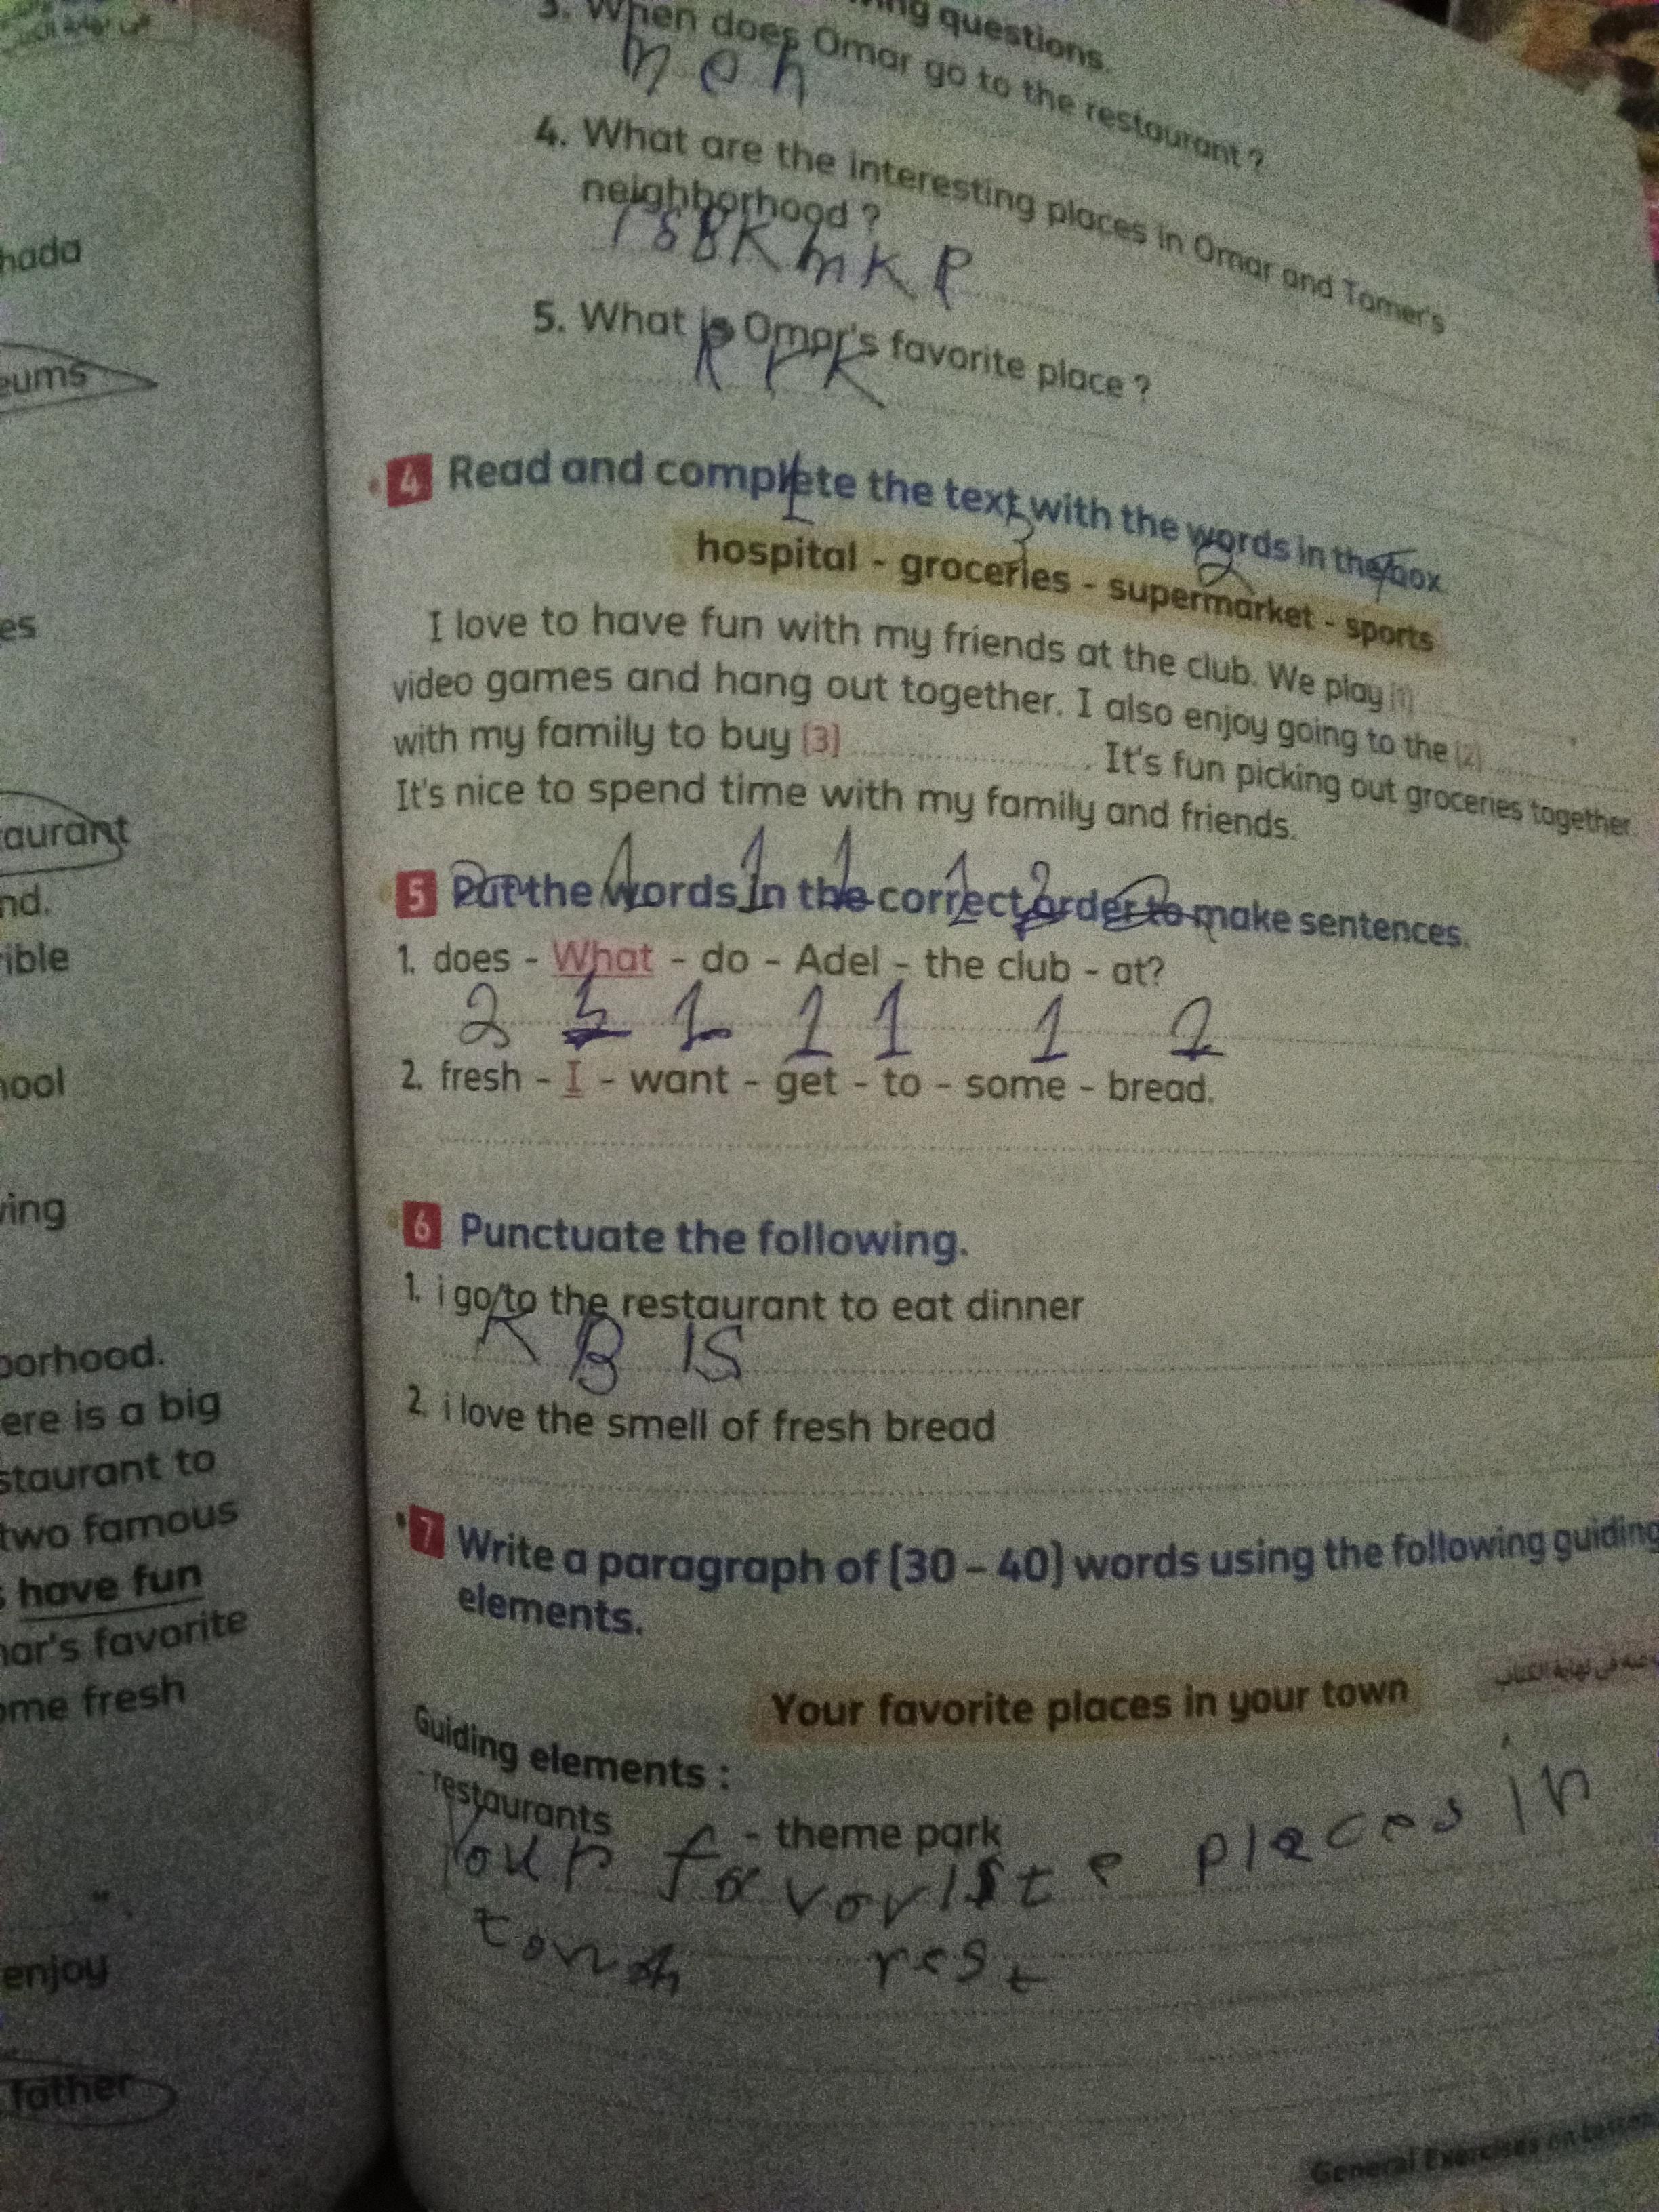 hada
eums
es
taurant
nd.
ible
hool
ving
borhood.
ere is a big
staurant to
two famous
have fun
nar's favorite
ome fresh
enjoy
father
ing questions.
3. When does Omar go to the restaurant ?
n e h
4. What are the interesting places in Omar and Tamer's
neighborhood ?
5. What is Omar's favorite place ?
4 Read and complete the text with the words in the box
1 3 2
hospital - groceries - supermarket - sports
I love to have fun with my friends at the club. We play (1)
video games and hang out together. I also enjoy going to the (2)
with my family to buy (3) . It's fun picking out groceries together.
It's nice to spend time with my family and friends.
5 Put the words in the correct order to make sentences.
1. does - What - do - Adel - the club - at?
2. fresh - I - want - get - to - some - bread.
6 Punctuate the following.
1. i go to the restaurant to eat dinner
K B IS
2. i love the smell of fresh bread
7 Write a paragraph of (30 – 40) words using the following guiding
elements.
Your favorite places in your town
Guiding elements :
- restaurants - theme park
Your places in
rest
General Exercises on Lesson